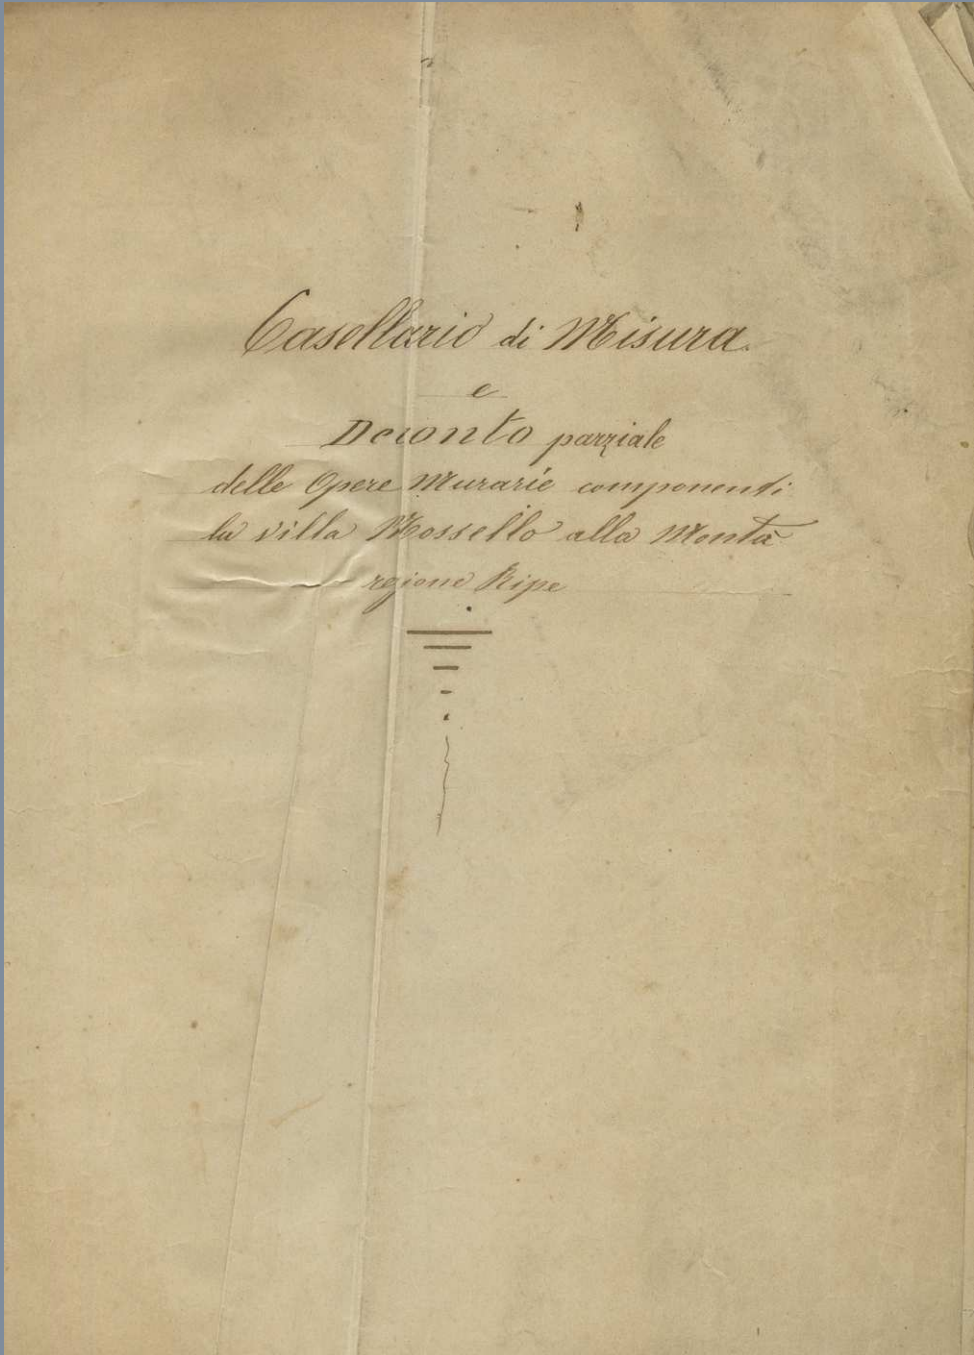 Casellario di Misura
e
Deconto parziale
delle Opere Murarie componenti
la villa Mossello alla Montà
regione Ripe